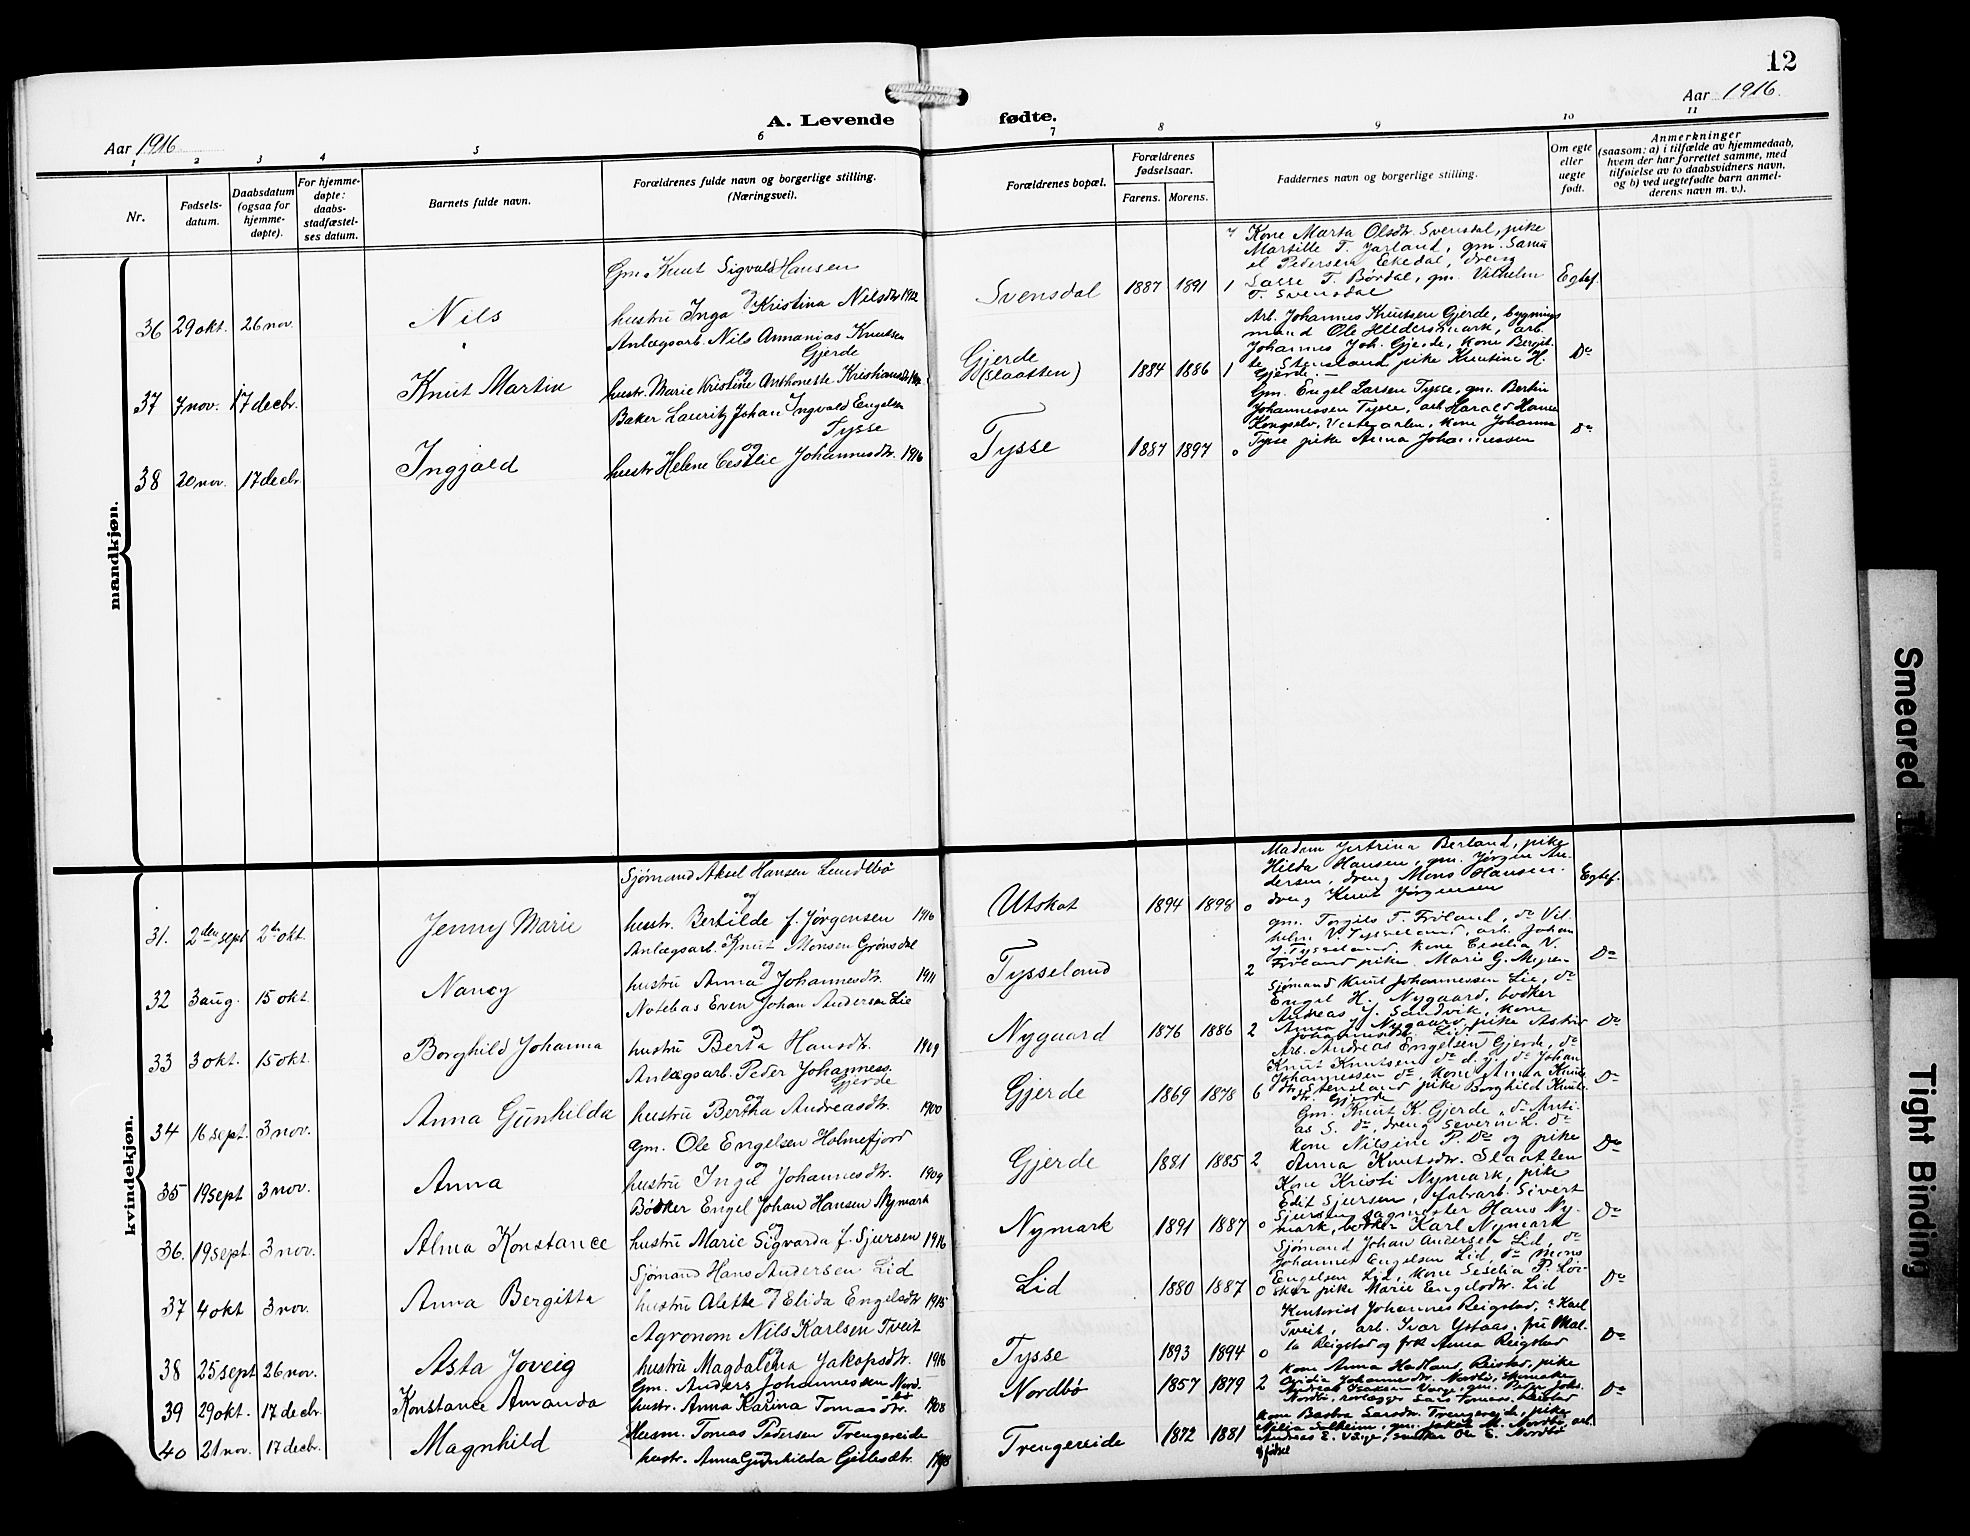 12
Aar 1916.
Aar 1916
A. Levende fødte.
1 2 3 4 5 6 7 8 9 10 11
Nr.
Fødsels-
datum.
Daabsdatum
(ogsaa for
hjemme-
døpte).
For hjemme-
døpte:
daabs-
stadfæstel-
ses datum.
Barnets fulde navn.
Forældrenes fulde navn og borgerlige stilling.
(Næringsvei).
Forældrenes bopæl.
Forældrenes
fødselsaar.
Farens. Morens.
Faddernes navn og borgerlige stilling.
Om egte
eller
uegte
født.
Anmerkninger
(saasom: a) i tilfælde av hjemmedaab,
hvem der har forrettet samme, med
tilføielse av to daabsvidners navn,
og b) ved uegtefødte barn anmel-
derens navn m. v.).
mandkjøn.
36 29 okt. 26 nov. Nils
Gm. Knut Sigvald Hansen
og
hustru Inga Kristina Nilsdtr 1912
Svensdal 1887 1891 1
Kone Marta Olsdtr. Svensdal, pike
Martille T. Jarland, gm. Samu
el Pedersen Eikedal, dreng
Lasse T. Børdal, gm. Vilhelm
T. Svensdal
Egtef.
37 7 nov. 17 decbr. Knut Martin
Anlægsarb. Nils Annanias Knutsen
Gjerde
og
hustr. Marie Kristine Anthonette Kristiansdtr
Gjerde
(Slaatten) 1884 1886 1
Arb. Johannes Knutsen Gjerde, bygnings
mand Ole Hildersmark, arb.
Johannes Joh. Gjerde, kone Bergit-
te Stensland pike Knutine H.
Gjerde. —
Do
38 20 nov. 17 decbr Ingjald
Baker Lauritz Johan Ingvald Engelsen
Tysse
og
hustr. Helene Cesilie Johannesdtr. 1916
Tysse 1887 1897 0
Gm. Engel Larsen Tysse, gm. Bertin
Johannessen Tysse, arb. Harald Hansen
Kongselv, Vestegarten, kone Johanna
Tysse pike Anna Johannessen
Do
kvindekjøn.
31. 2den sept 2te okt. Jenny Marie
Sjømand Aksel Hansen Lundebø
og
hustr. Bertilde f. Jørgensen 1916
Utskot 1894 1898 0
Madam Jertrina Berland, pike
Hilda Hansen, gm. Jørgen An-
dersen, dreng Mons Hansen.
dreng Knut Jørgensen
Egtef.
32 3 aug. 15 okt. Nancy
Anlægsarb. Knut Monsen Grønsdal
og
hustru Anna Johannesdtr. 1911
Tysseland 2
gm. Torgils T. Frøland, do Vil-
helm V. Tysseland, arb. Johan
J. Tysseland, kone Cesilia V.
Frøland pike Marie G. Myren
Do
33 3 okt. 15 okt. Borghild Johanna
Notebas Even Johan Andersen Lie
og
hustru Berta Hansdtr. 1909
Nygaard 1876 1886 2
Sjømand Knut Johannessen Lie, do
Engel H. Nygaard, bødker
Andreas J. Sandvik, kone
Anna J. Nygaard, pike Astrid
Johannesdtr. Lid. —
Do
34 16 sept. 3 nov. Anna Gunhilda
Anlægsarb. Peder Johanness.
Gjerde
og
hustru Bertha Andreasdtr. 1900
Gjerde 1869 1878 6
Arb. Andreas Engelsen Gjerde, do
Knut Knutsen do d. y., do Johan
Johannessen do kone Anna Knuts
dtr. Stensland pike Borghild Knuts
dtr. Gjerde
Do
35 19 sept 3 nov. Anna
Gm. Ole Engelsen Holmefjord
og
hustru Inga Johannesdtr. 1909
Gjerde 1881 1885 2
Gm. Knut K. Gjerde, do Anti-
as S. do, dreng Severin L. do
kone Nilsine P. Do og pike
Anna Knutsdtr. Slaatten
Do
36. 19 sept 3 nov. Alma Konstance
Bødker Engel Johan Hansen Nymark
og
hustru Marie Sigvarda f. Sjursen 1916
Nymark 1891 1887 0
Kone Kristi Nymark, pike
Edit Sjursen, fabrarb. Sivert
Sjursen, sagmester Hans Ny-
mark, bødker Karl Nymark
Do
37 4 okt 3 nov. Anna Bergitta
Sjømand Hans Andersen Lid
og
hustru Alette Elida Engelsdtr 1915
Lid 1880 1887 0
Sjømand Johan Andersen Lid, do
Johannes Engelsen Lid, do Mons
Engelsen Lid, kone Seselia P. Løi-
skar pike Marie Engelsdtr. Lid
Do
38 25 sept 26 nov. Asta Joveig
Agronom Nils Karlsen Tveit
og
hustru Magdalena Jakopsdtr. 1916
Tysse 1893 1894 0
Kontorist Johannes Reigstad, Karl
Tveit, arb. Ivar Ystaas, fru Mal-
la Reigstad og frk Anna Reigstad
Do
39 29 okt. 17 decbr. Konstance Amanda
Gm. Anders Johannessen Nord-
bø
hustr. Anna Karina Tomasdtr. 1908
Nordbø 1857 1879 2
Kone Anna Hadland, Reistad, pike
Ovidia Johannesdtr. Nordbø,
Andreas Isaksen Vaage, gm. Peder Johs.
Nordbø, Lars Tomas.
Do
40 21 nov. 17 decbr. Magnhild
Husm. Tomas Pedersen Trengereide
og
hustr. Anna Gunhilda Gjertsdtr. 1908
Trengereide 1872 1881
Kone Berta Larsdtr. Trengereide, pike
Milla Solheim, gm. Jakob M. Nordbø, arb.
Andreas E. Vaage, snekker Ole E. Nordbø
9 fødsel
Smeared
Tight Binding